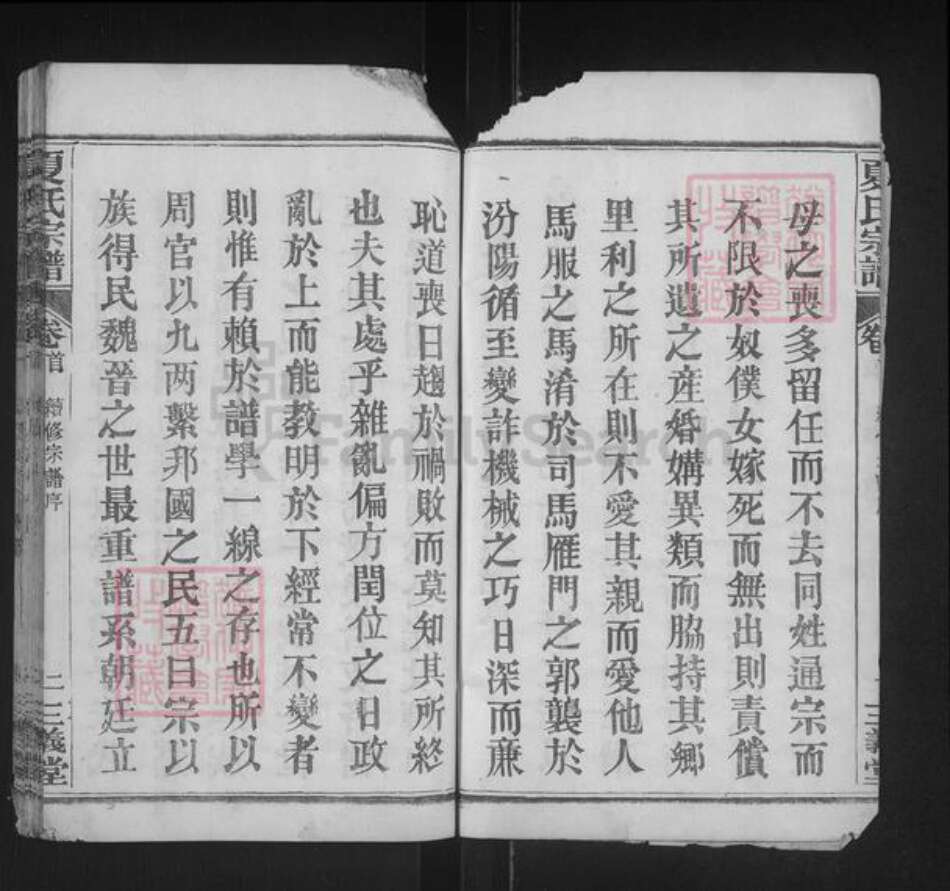 夏氏宗譜 卷
三義堂
母之喪多留任而不去同姓通宗而
不限於奴僕女嫁死而無出則責償
其所遺之産婚媾異類而脇持其鄉
里利之所在則不愛其親而愛他人
馬服之馬淆於司馬雁門之郭襲於
汾陽循至變詐機械之巧日深而亷
恥道喪日趨於禍敗而莫知其所終
也夫其處乎雜亂偏方閏位之日政
亂於上而能教明於下經常不變者
則惟有賴於譜學一線之存也所以
周官以九两繫邦國之民五曰宗以
族得民魏晉之世最重譜系朝廷立
夏氏宗譜 卷首 續修宗譜序 二 三義堂
FamilySearch